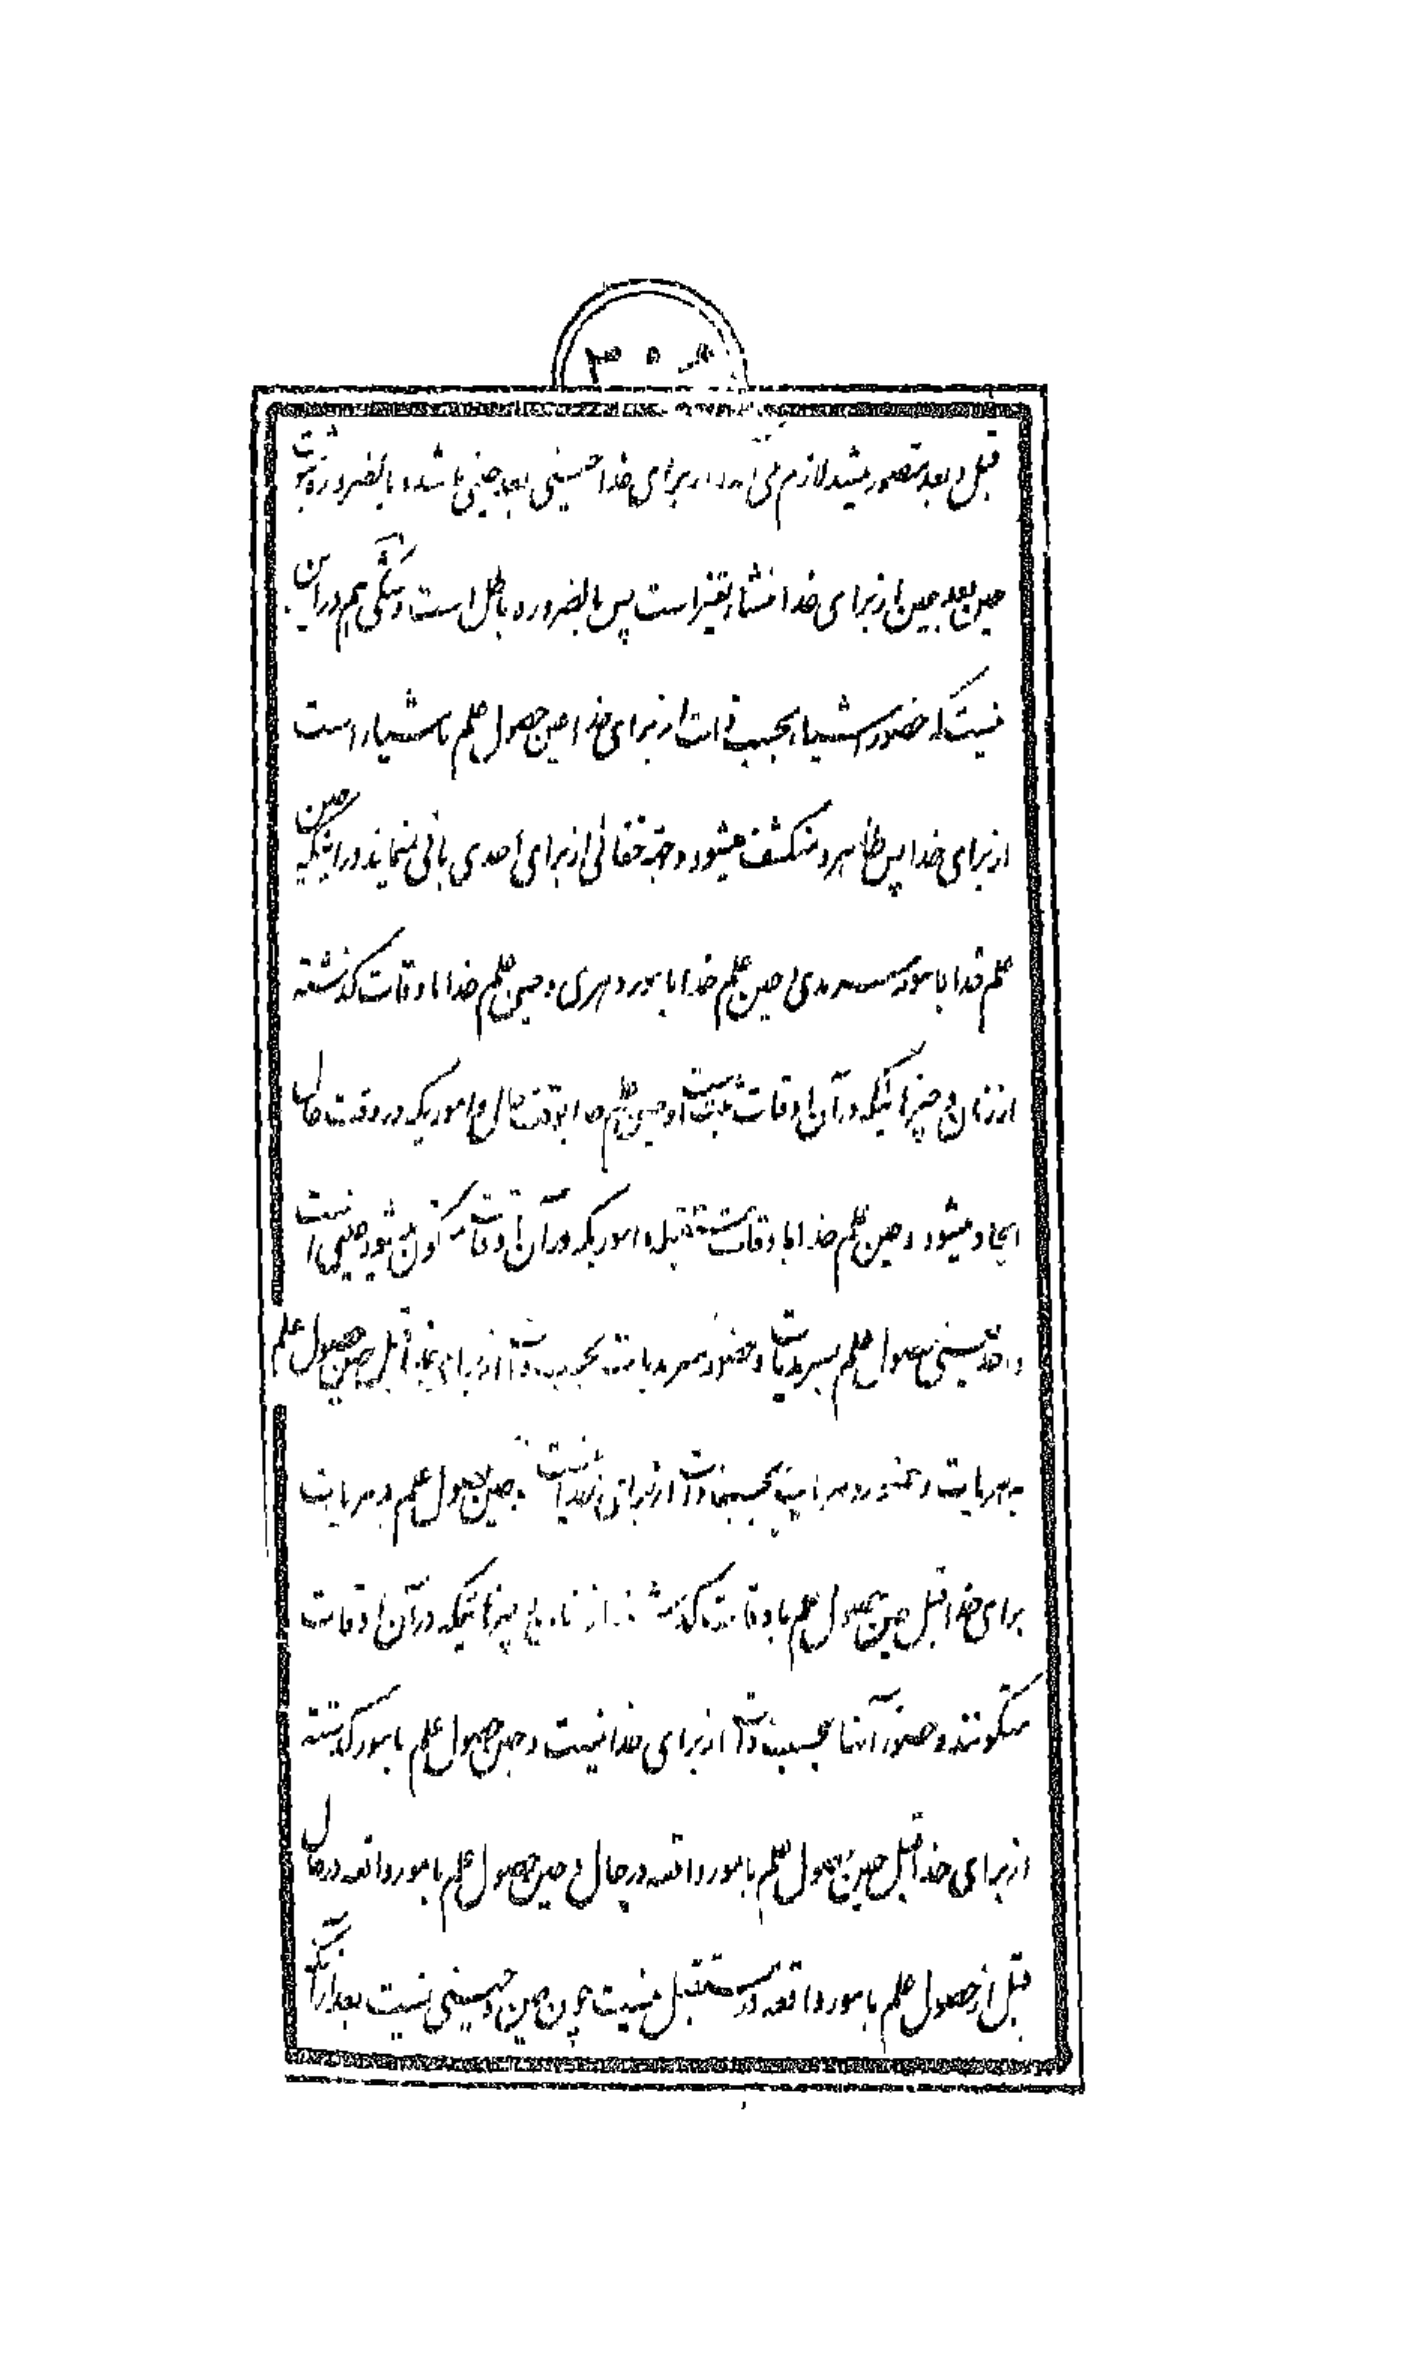 قبل و بعد متصور میشد لازم می آمد از برای خدا حینی بعد حینی باشد و بالضروره ثبوت
حین بعد حین از برای خدا منشاء تغیر است پس بالضروره باطل است و شکی هم در این
نیست که حضور اشیاء بحسب ذات از برای خدا عین حصول علم باشیاء است
از برای خدا پس ظاهر و منکشف میشود و جهة خفائی از برای احدی باقی نمیماند در اینکه حین
علم خدا بامور سرمدی حین علم خدا بامور دهری و حین علم خدا باوقات گذشته
از زمان و چیزهائیکه در آن اوقات است و حین علم خدا بوقت حال و اموریکه در وقت حال
ایجاد میشود و حین علم خدا باوقات مستقبله و اموریکه در آن اوقات متکون میشود حینی است
واحد یعنی حصول علم بسرمدیات و حضور سرمدیات بحسب ذات از برای خدا قبل حین حصول علم
بدهریات و حضور دهریات بحسب ذات از برای خدا نیست و حین حصول علم بدهریات
برای خدا قبل حین حصول علم باوقات گذشته از زمان و چیزهائیکه در آن اوقات
متکونند و حضور آنها بحسب ذات از برای خدا نیست و حین حصول علم بامور گذشته
از برای خدا قبل حین حصول علم بامور واقعه در حال و حین حصول علم بامور واقعه در حال
قبل از حصول علم بامور واقعه در مستقبل نیست چون حین و حینی نیست بعد از آنکه